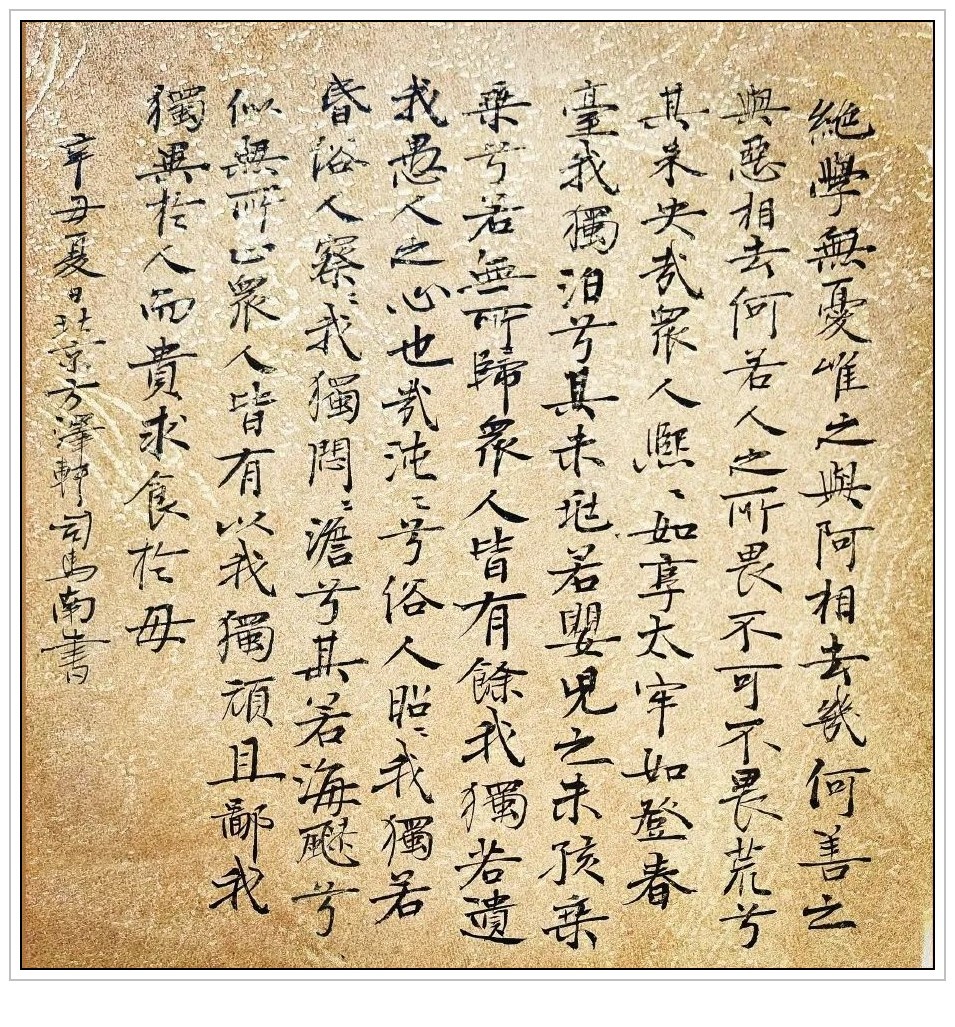 絶學無憂唯之與阿相去幾何善之
與惡相去何若人之所畏不可不畏荒兮
其未央哉衆人熙〻如享太牢如登春
臺我獨泊兮其未兆若嬰兒之未孩乘
乘兮若無所歸衆人皆有餘我獨若遺
我愚人之心也哉沌〻兮俗人昭〻我獨若
昏俗人察〻我獨悶〻澹兮其若海飂兮
似無所止衆人皆有以我獨頑且鄙我
獨異於人而貴求食於母
辛丑夏日北京方澤軒司馬南書